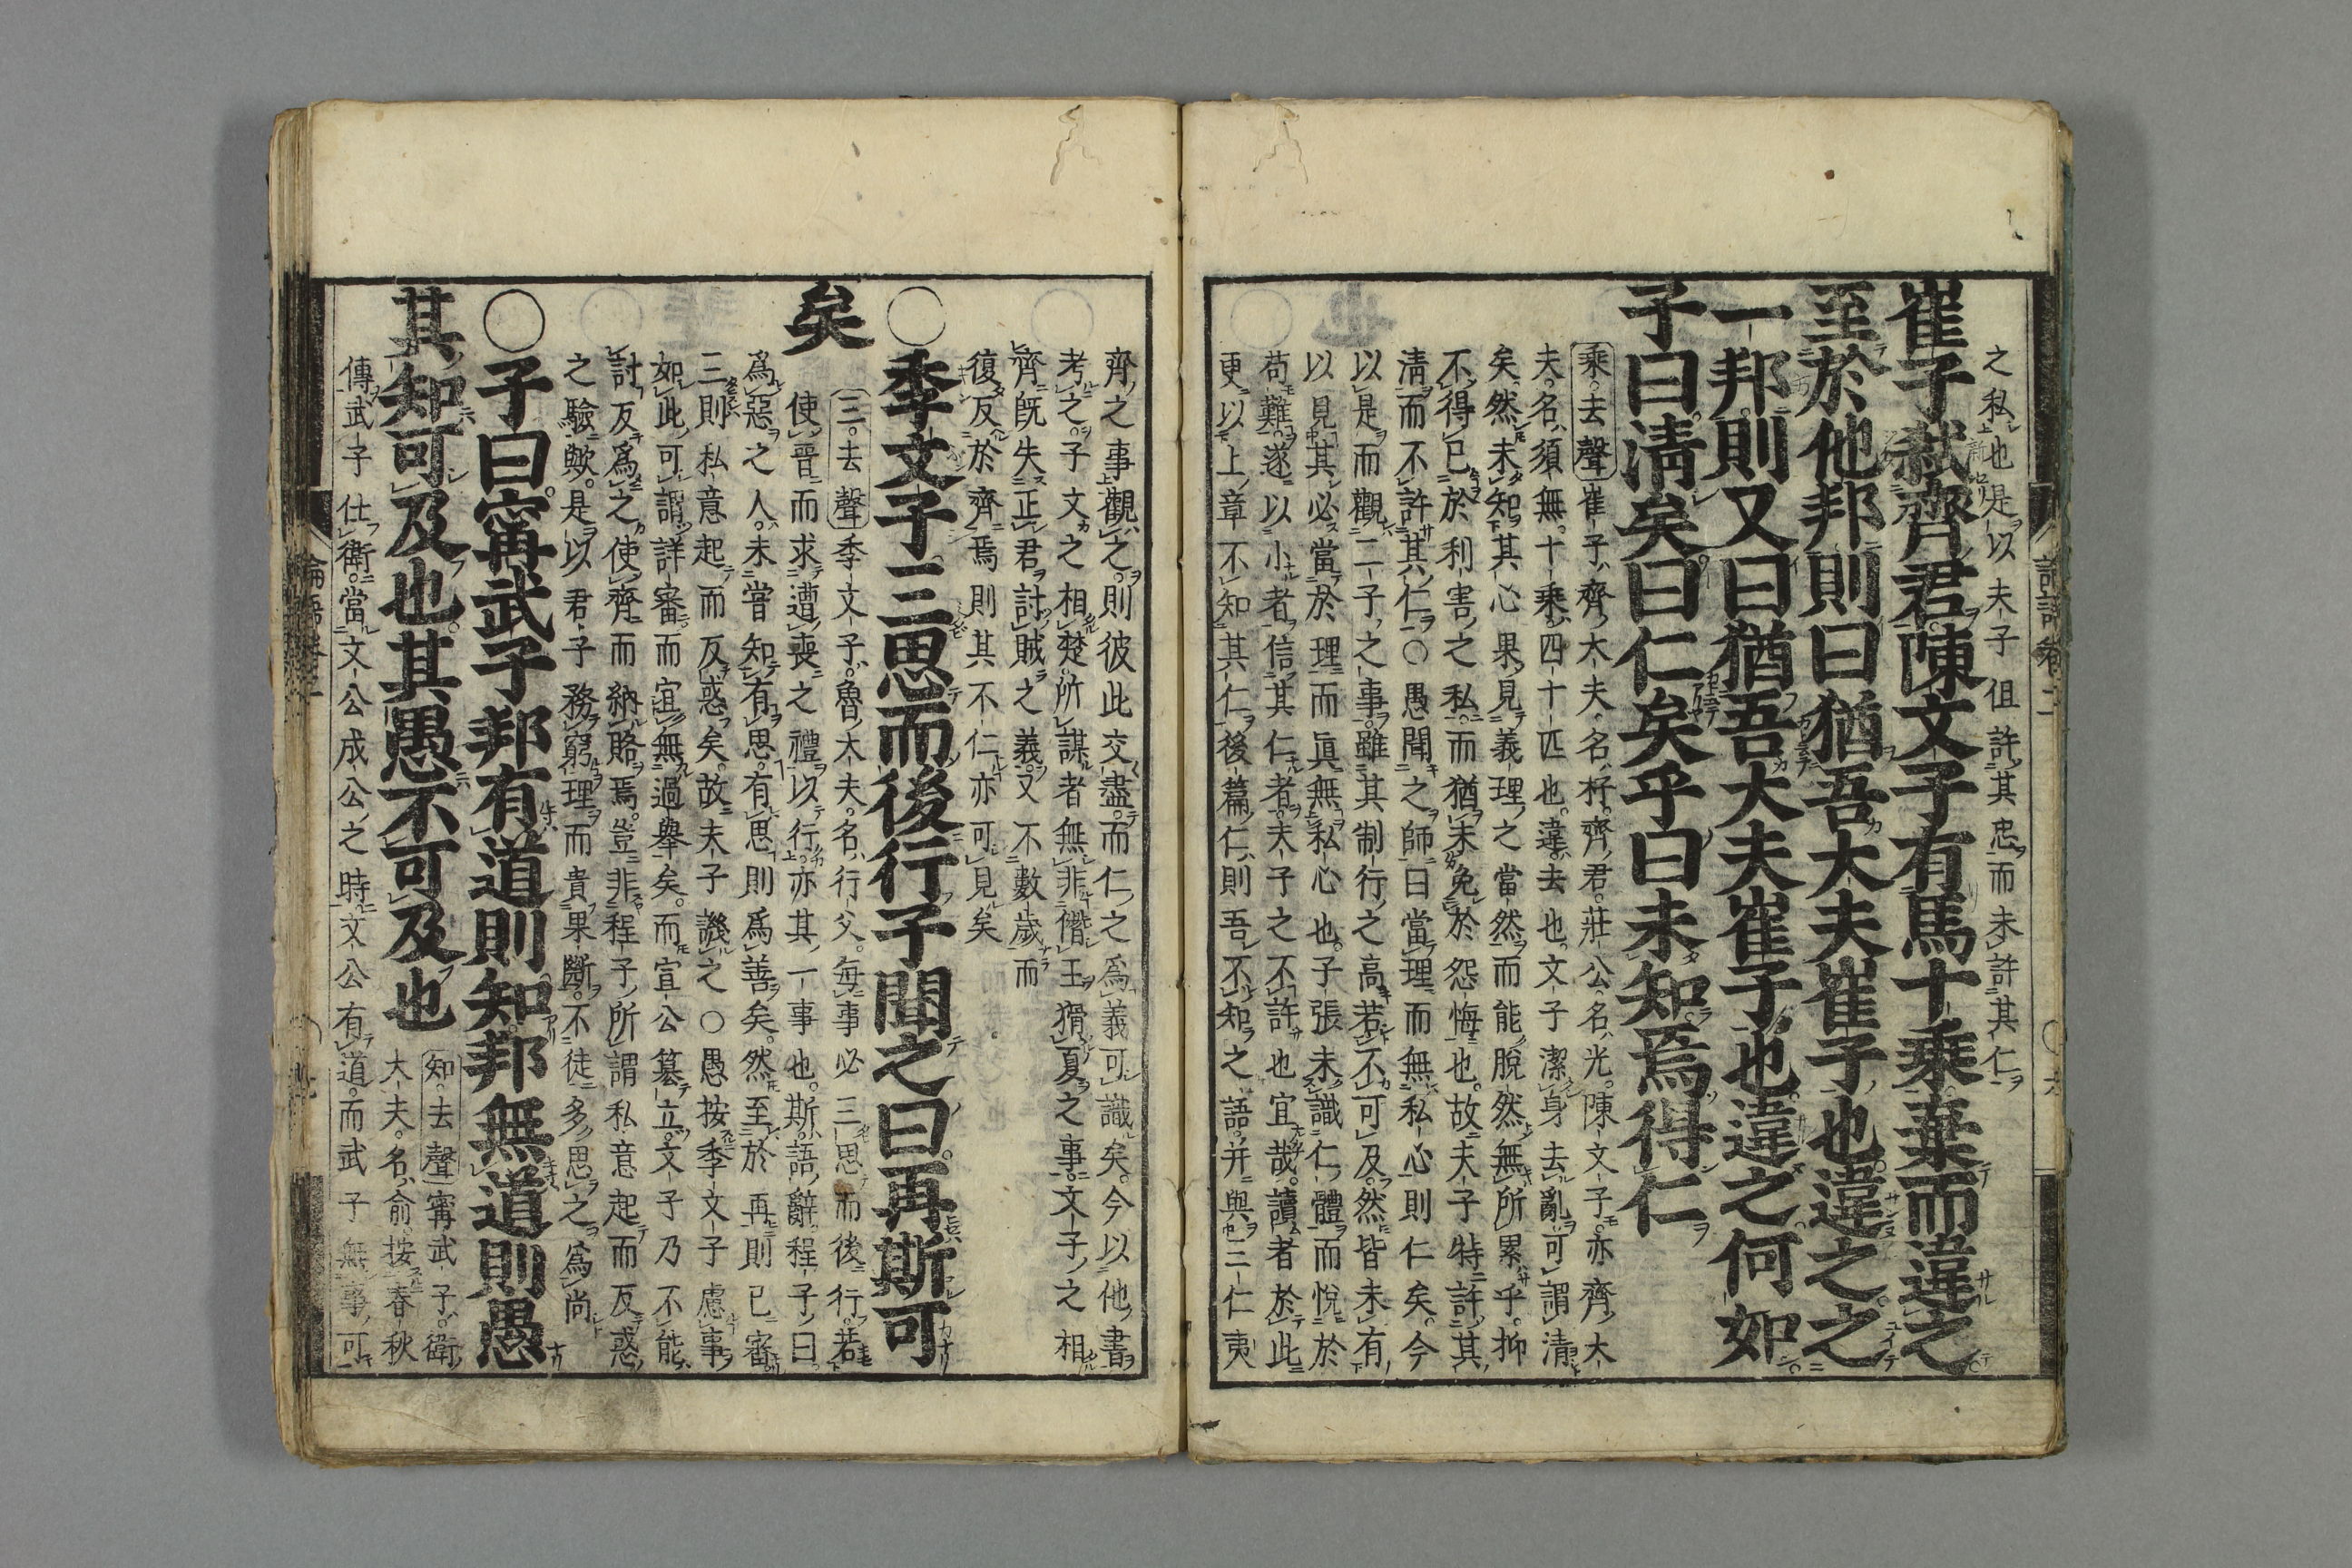 之私也是以夫子但許其忠而未許其仁
崔子弑齊君陳文子有馬十乘棄而違之
至於他邦則曰猶吾大夫崔子也違之之
一邦則又曰猶吾大夫崔子也違之何如
子曰淸矣曰仁矣乎曰未知焉得仁
乘去聲崔子齊大夫名杼齊君莊公名光陳文子亦齊大
夫名須無十乘四十匹也違去也文子潔身去亂可謂淸
矣然未知其心果見義理之當然而能脫然無所累乎抑
不得已於利害之私而猶未免於怨悔也故夫子特許其
淸而不許其仁〇愚聞之師曰當理而無私心則仁矣今
以是而觀二子之事雖其制行之高若不可及然皆未有
以見其必當於理而眞無私心也子張未識仁體而悅於
苟難遂以小者信其仁者夫子之不許也宜哉讀者於此
更以上章不知其仁後篇仁則吾不知之語幷與三仁夷
齊之事觀之則彼此交盡而仁之爲義可識矣今以他書
考之子文之相楚所謀者無非僭王猾夏之事文子之相
齊旣失正君討賊之義又不數歲而
復反於齊焉則其不仁亦可見矣
〇季文子三思而後行子聞之曰再斯可
矣
三去聲季文子魯大夫名行父每事必三思而後行若
使晉而求遭喪之禮以行亦其一事也斯語辭程子曰
爲惡之人未嘗知有思有思則爲善矣然至於再則已審
三則私意起而反惑矣故夫子譏之〇愚按季文子慮事
如此可謂詳審而宜無過擧矣而宣公簒立文子乃不能
討反爲之使齊而納賂焉豈非程子所謂私意起而反惑
之驗歟是以君子務窮理而貴果斷不徒多思之爲尚
〇子曰甯武子邦有道則知邦無道則愚
其知可及也其愚不可及也
知去聲甯武子衛
大夫名俞按春秋
傳武子仕衛當文公成公之時文公有道而武子無事可